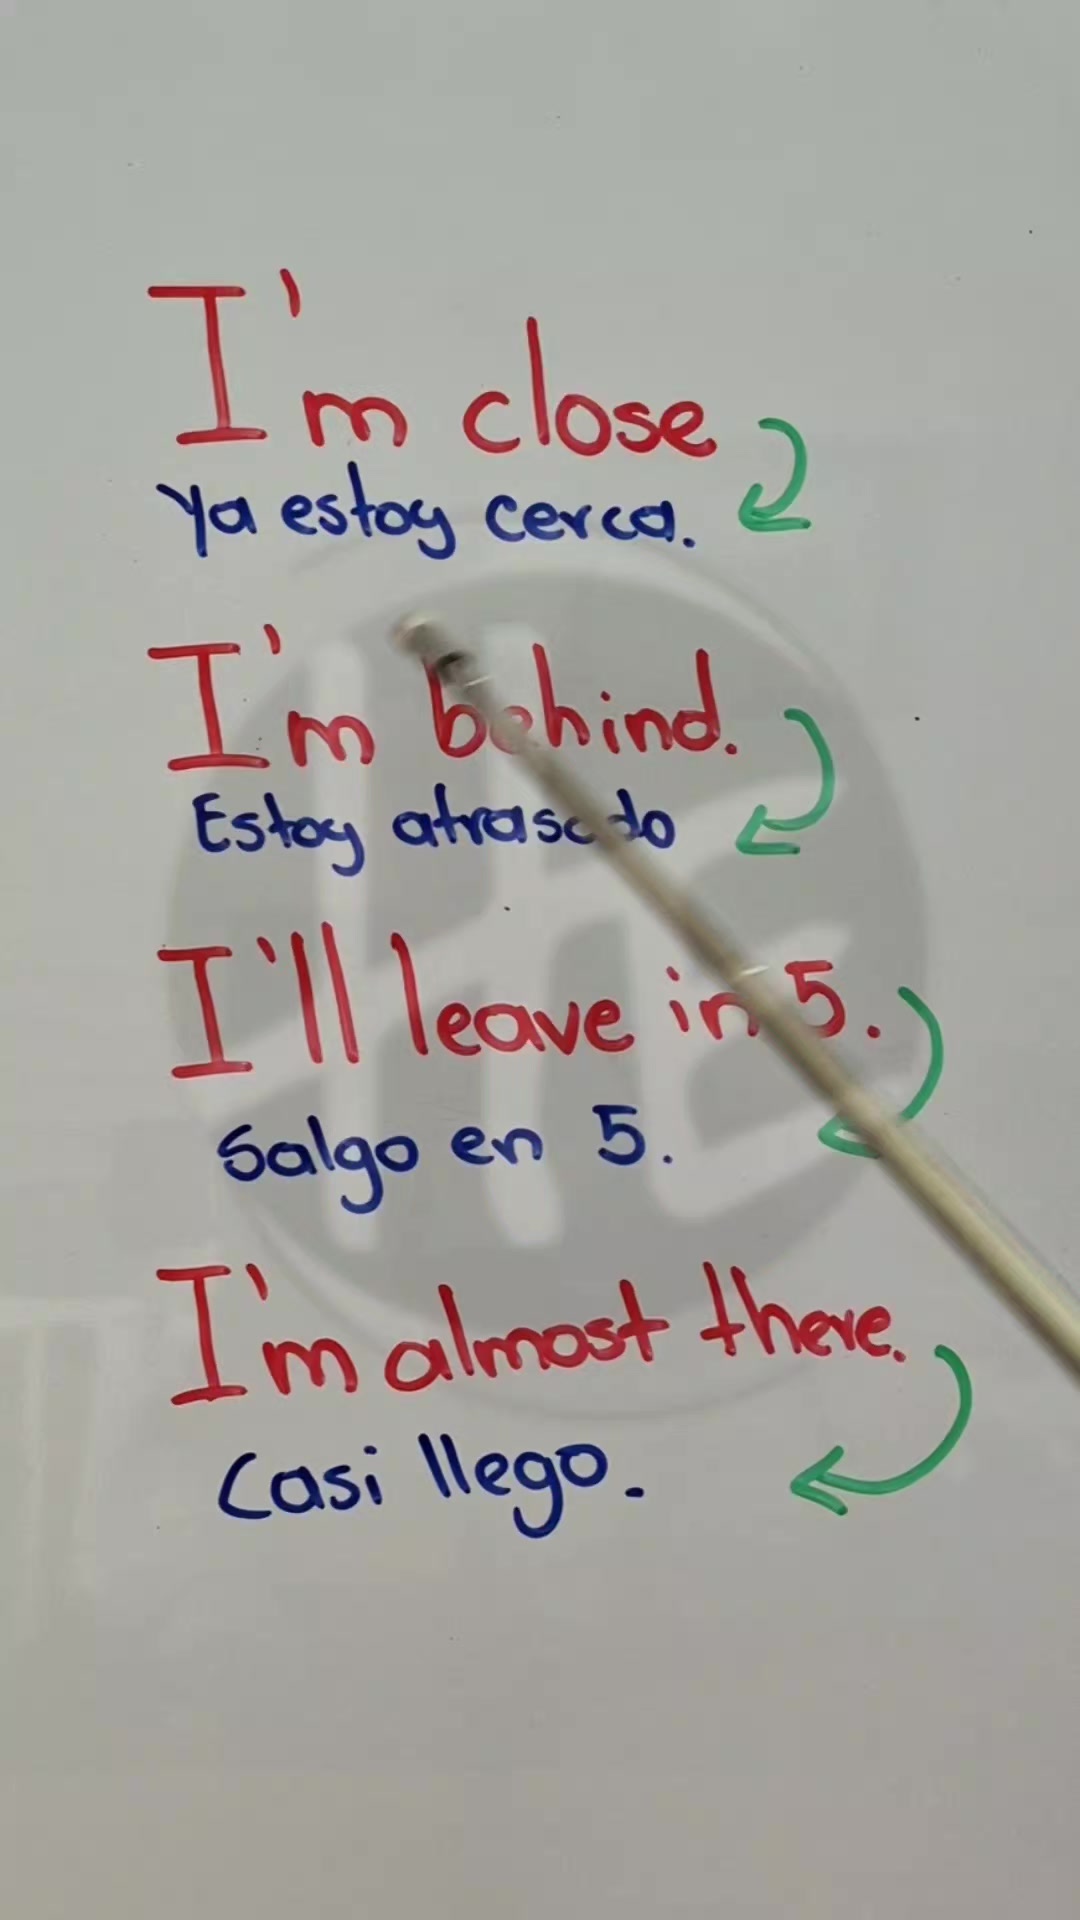 I'm close
Ya estoy cerca.
I'm behind.
Estoy atrasado
I'll leave in 5.
Salgo en 5.
I'm almost there.
Casi llego.